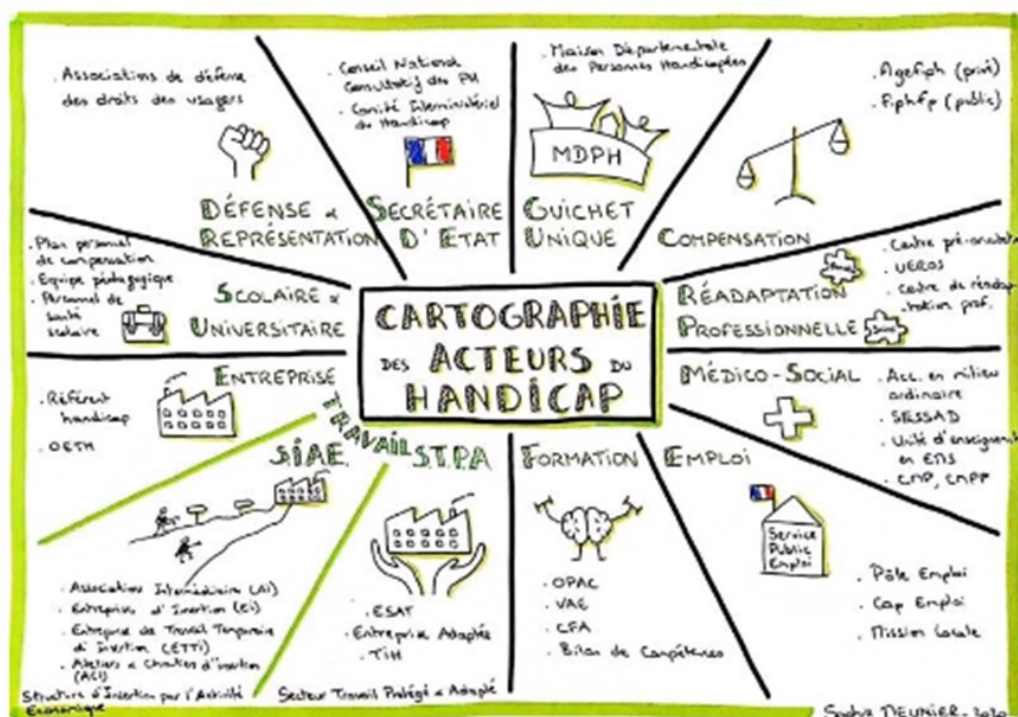 CARTOGRAPHIE
DES ACTEURS DU
HANDICAP
. Associations de défense
des droits des usagers
DÉFENSE &
REPRÉSENTATION
. Conseil National
Consultatif des PH
. Comité Interministériel
du Handicap
SECRÉTAIRE
D'ETAT
. Maison Départementale
des Personnes Handicapées
MDPH
GUICHET
UNIQUE
. Agefiph (privé)
. Fiphfp (public)
COMPENSATION
. Centre pré-orientation
. UEROS
. Centre de réadap-
-tation prof.
RÉADAPTATION
PROFESSIONNELLE
MÉDICO-SOCIAL
. Acc. en milieu
ordinaire
. SESSAD
. Unité d'enseignement
en EMS
. CMP, CMPP
EMPLOI
Service
Public
Emploi
. Pôle Emploi
. Cap Emploi
. Mission Locale
FORMATION
. OPAC
. VAE
. CFA
. Bilan de Compétences
TRAVAIL
S.T.P.A
. ESAT
. Entreprise Adaptée
. TIH
Secteur Travail Protégé & Adapté
S.I.A.E.
. Association Intermédiaire (AI)
. Entreprise d'Insertion (EI)
. Entreprise de Travail Temporaire
d'Insertion (ETTI)
. Ateliers & Chantiers d'insertion
(ACI)
Structure d'Insertion par l'Activité
Economique
ENTREPRISE
. Référent
handicap
. OETH
. Plan personnel
de compensation
. Equipe pédagogique
. Personnel de
santé
scolaire
SCOLAIRE &
UNIVERSITAIRE
MEUNIER - 2020